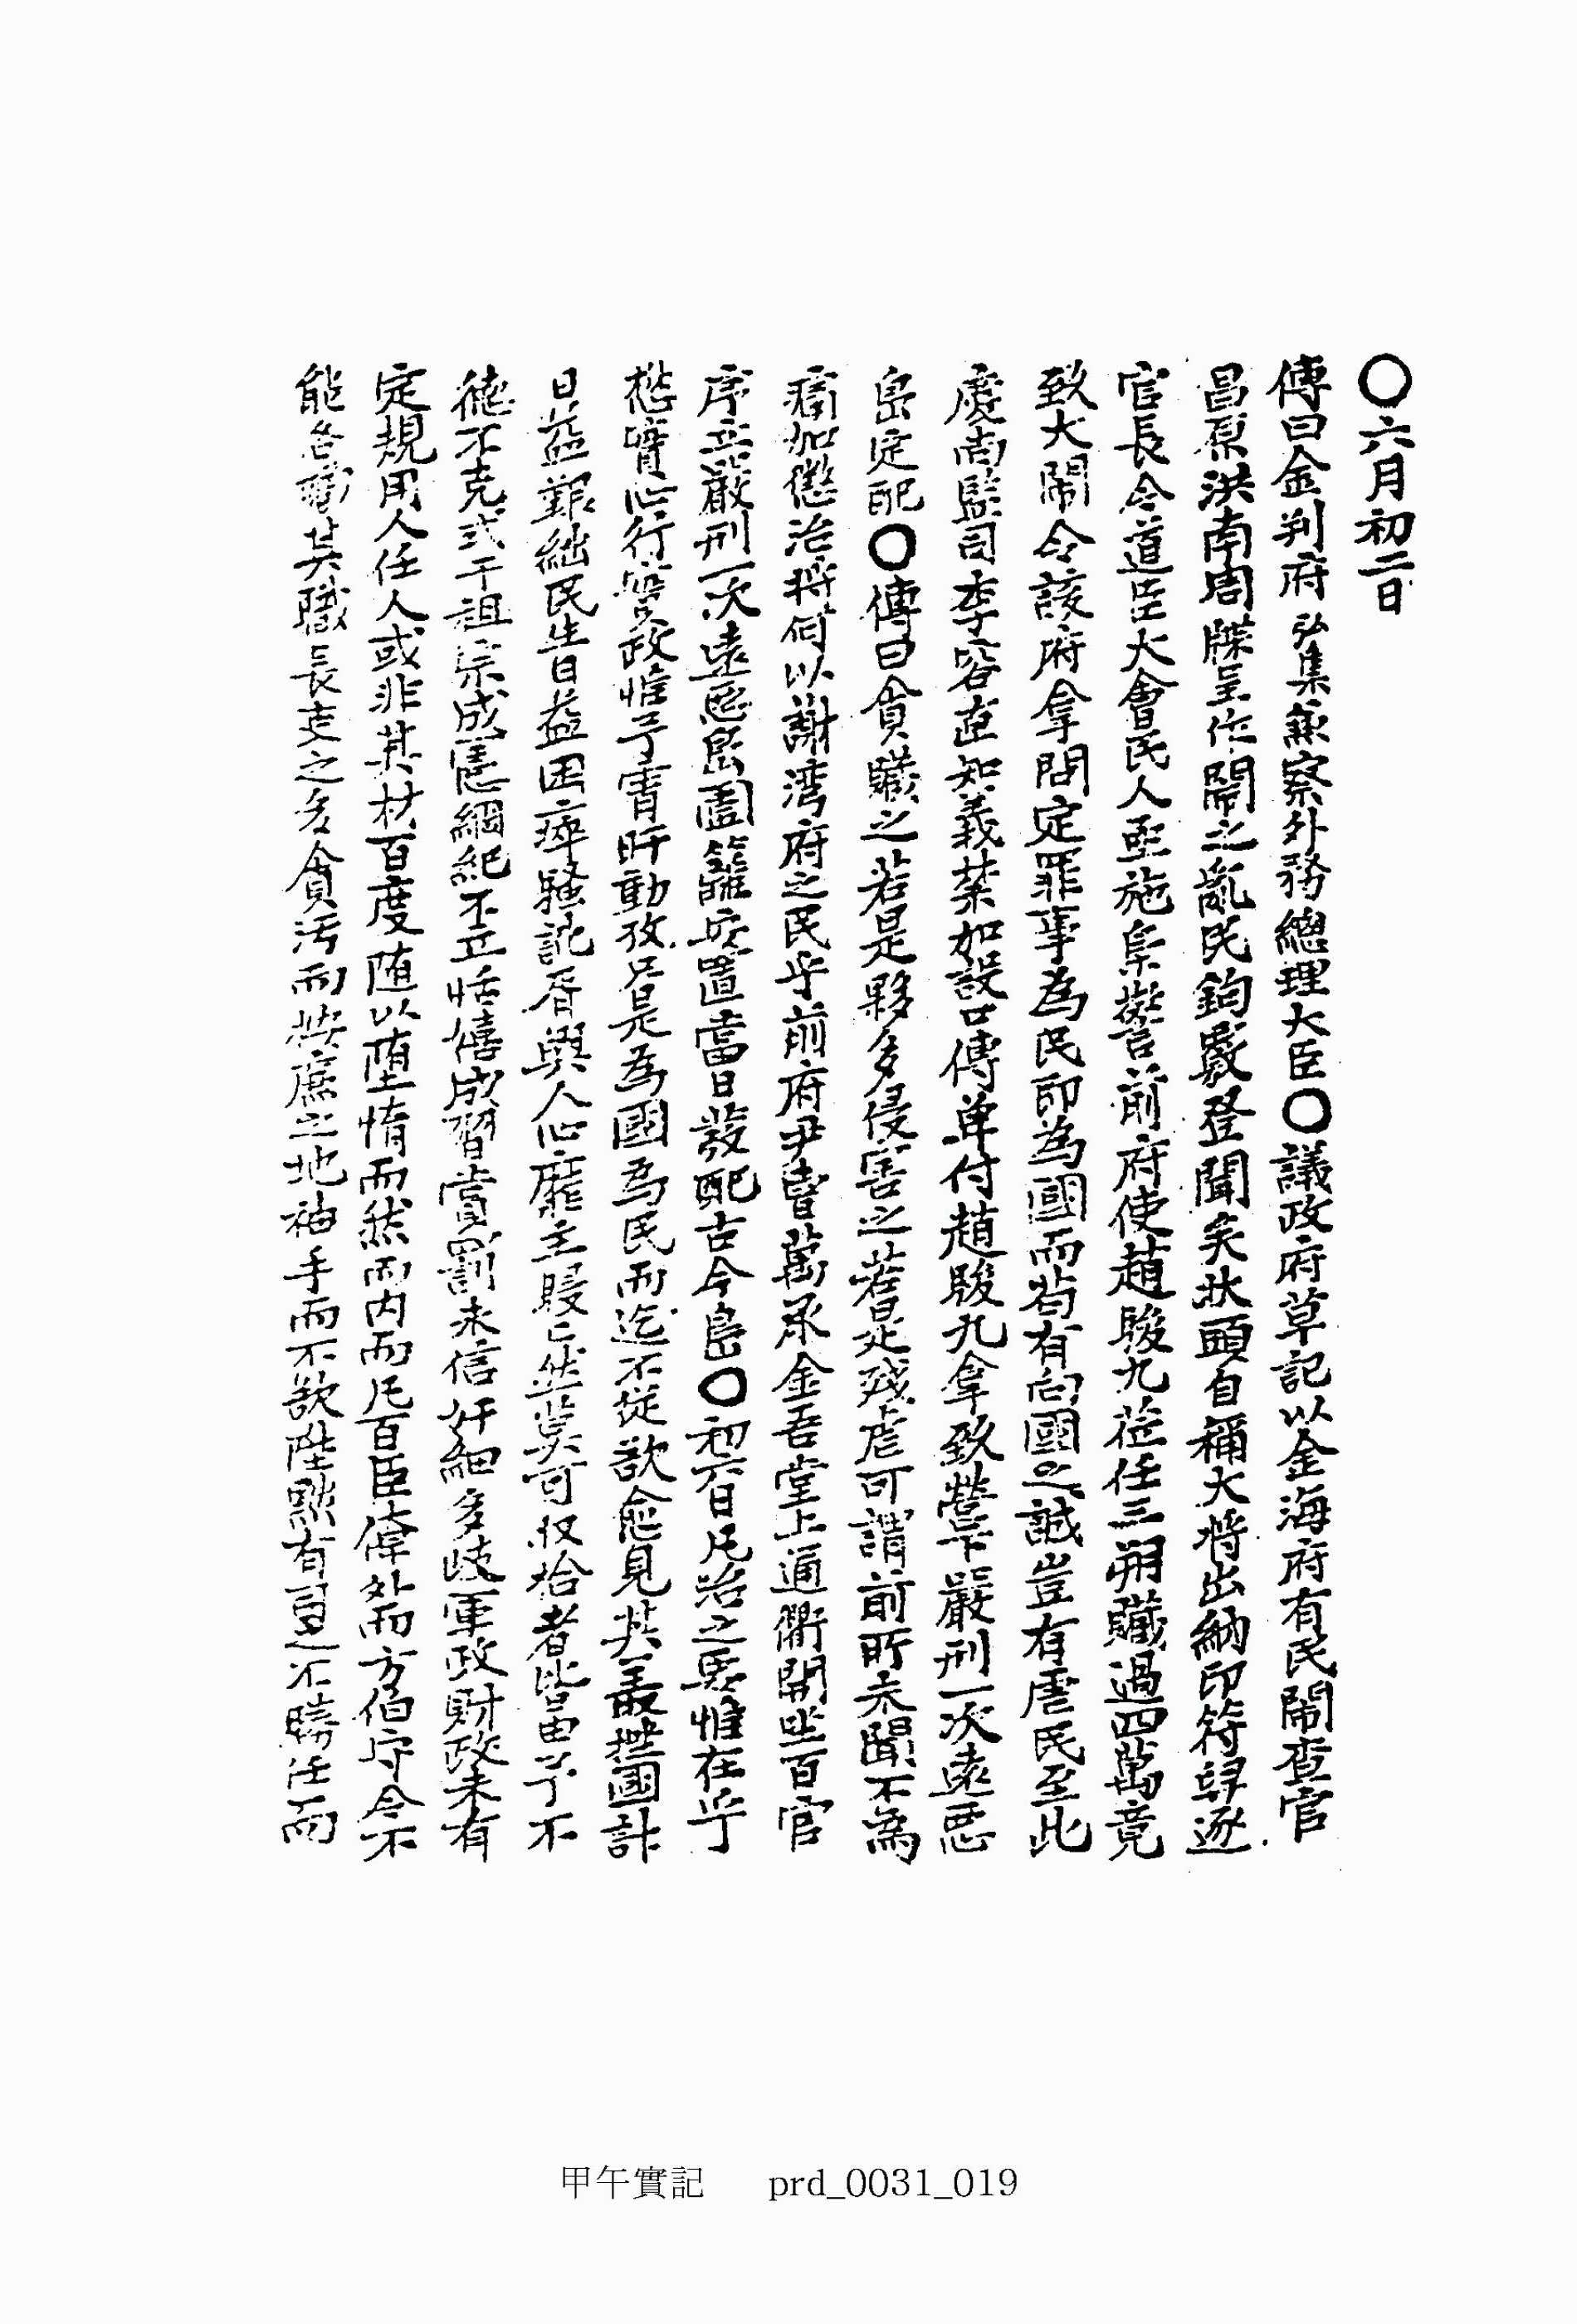 〇六月初二日
傳曰金判府弘集兼察外務總理大臣〇議政府草記以金海府有民鬧査官
昌原洪南周牒呈作鬧之亂民鉤覈登聞矣狀頭自稱大將出納印符歸逐
官長令道臣大會民人亟施梟警前府使趙駿九莅任三朔贓過四萬竟
致大鬧令該府拿問定罪事為民即為國而苟有向國之誠豈有虐民至此
慶尚監司李容直知義禁加設口傳單付趙駿九拿致營下嚴刑一次遠惡
島定配〇傳曰貪贓之若是夥多侵害之若是殘虐可謂前所未聞不為
痛加懲治將何以謝湾府之民乎前府尹曾萬承金吾堂上通衢開坐百官
序立嚴刑一次遠惡島圍籬安置當日發配古今島〇初六日凡治之要惟在乎
愁實心行實政惟予宵旰勤孜只是為國為民而迄不從欲愈見其叢挫國計
日益艱絀民生日益困瘁騷訛胥興人心靡主駸駸然莫可収拾者皆由予不
德不克式于祖宗成憲綱紀不立恬憘成習賞罰未信奸細多歧軍政財政未有
定規用人任人或非其材百度随以墮惰而然而内而凡百臣僚外而方伯守令不
能各職其職長吏之多貪污而按廉之地袖手而不欲陞黜有司之不勝任而
甲午實記 prd_0031_019